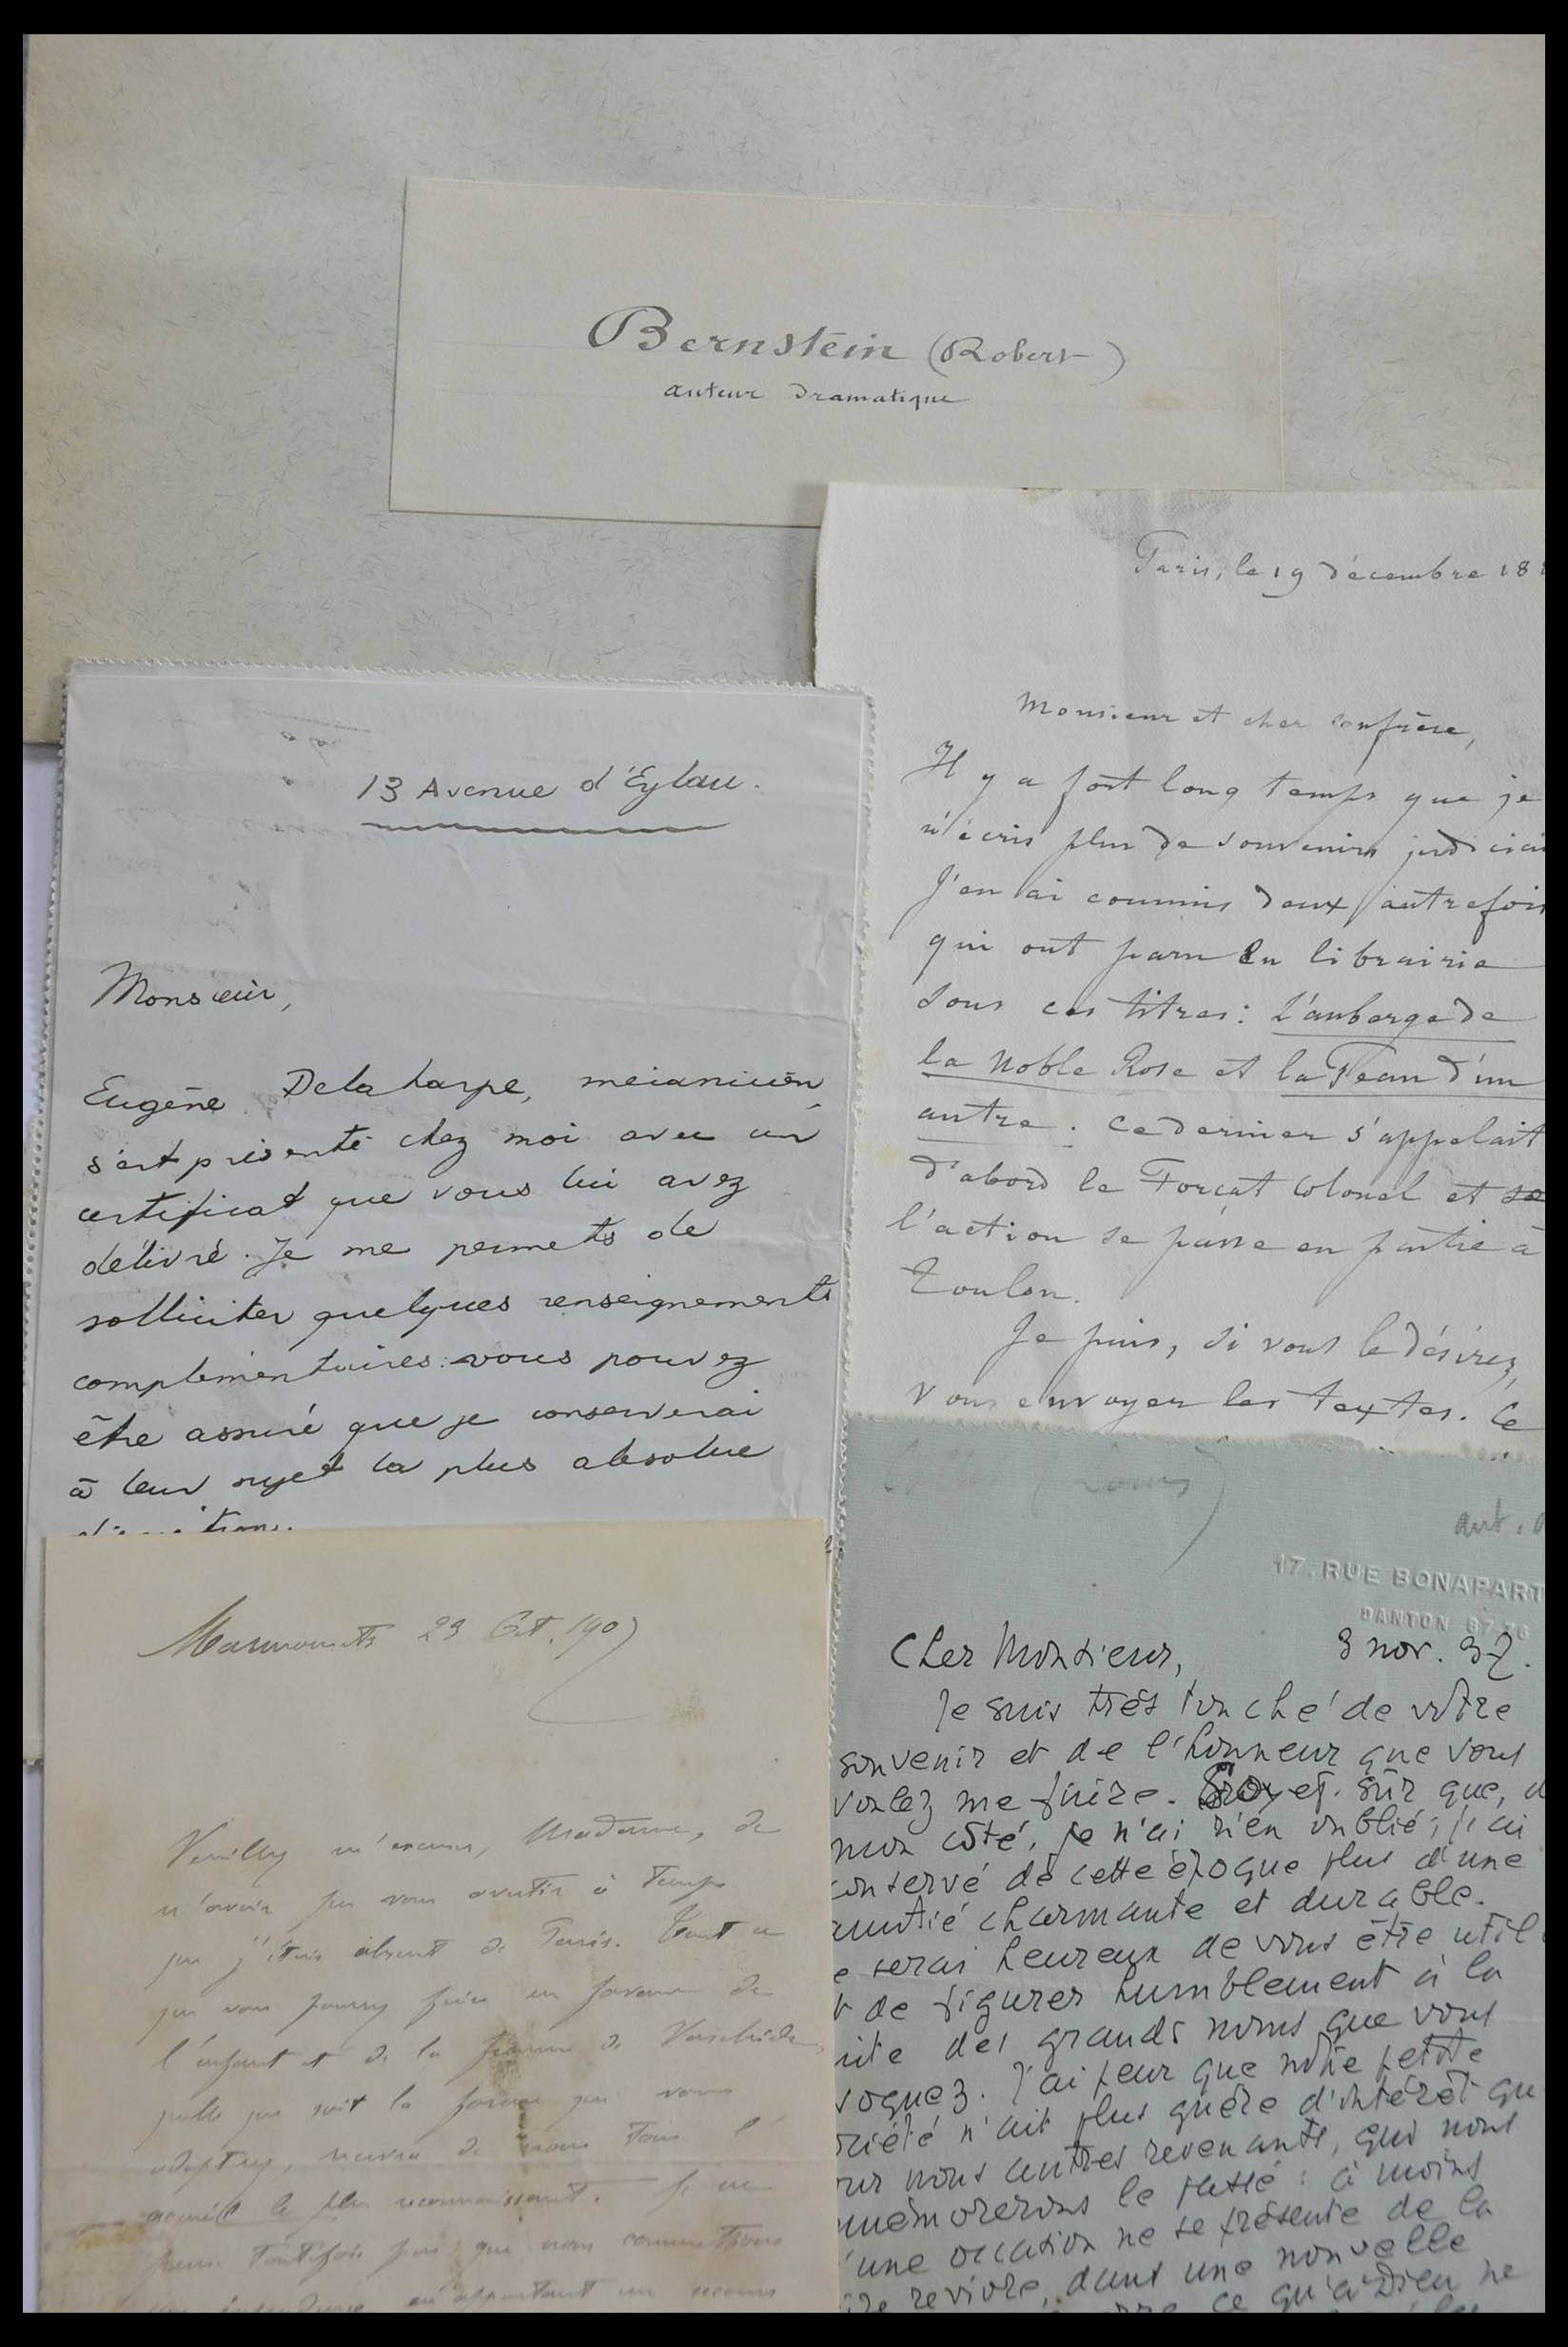 Bernstein (Robert)
auteur dramatique
Paris, le 19 décembre 18
Monsieur et cher confrère,
Il y a fort long temps que je
n'écris plus de souvenirs judiciai
J'en ai commis deux autrefois
qui ont paru en librairie
sous ces titres: L'auberge de
la Noble Rose et la Peau d'un
autre. Ce dernier s'appelait
d'abord le Forçat Colonel et se
l'action se passe en partie à
Toulon.
Je puis, si vous le désirez,
vous envoyer les textes. Ce
13 Avenue d'Eylau.
Monsieur,
Eugène Delaharpe, mécanicien,
s'est présenté chez moi avec un
certificat que vous lui avez
délivré. Je me permets de
solliciter quelques renseignements
complémentaires: vous pouvez
être assuré que je conserverai
à leur sujet la plus absolue
Marmousets 23 Oct. 1907
Veuillez m'excuser, Madame, de
n'avoir pu vous avertir à temps
que j'étais absent de Paris. Tout ce
que vous pourrez faire en faveur de
l'enfant et de la femme de
quelle que soit la forme que vous
adoptiez, recevra de nous tous l'
accueil le plus reconnaissant. Je ne
pense toutefois pas que nous commettions
en apportant un secours
(Louis)
17. RUE BONAPART
DANTON 87-76
Cher Monsieur,
3 nov. 37.
Je suis très touché de votre
souvenir et de l'honneur que vous
voulez me faire. Soyez sûr que, d
mon côté, je n'ai rien oublié; j'ai
conservé de cette époque plus d'une
amitié charmante et durable.
e serai heureux de vous être util
t de figurer humblement à la
uite des grands noms que vous
voquez. J'ai peur que notre petite
ociété n'ait plus guère d'intérêt qu
our nous autres revenants, qui nous
remémorerons le passé: à moins
'une occasion ne se présente de la
ire revivre, dans une nouvelle
ce qu'à Dieu ne